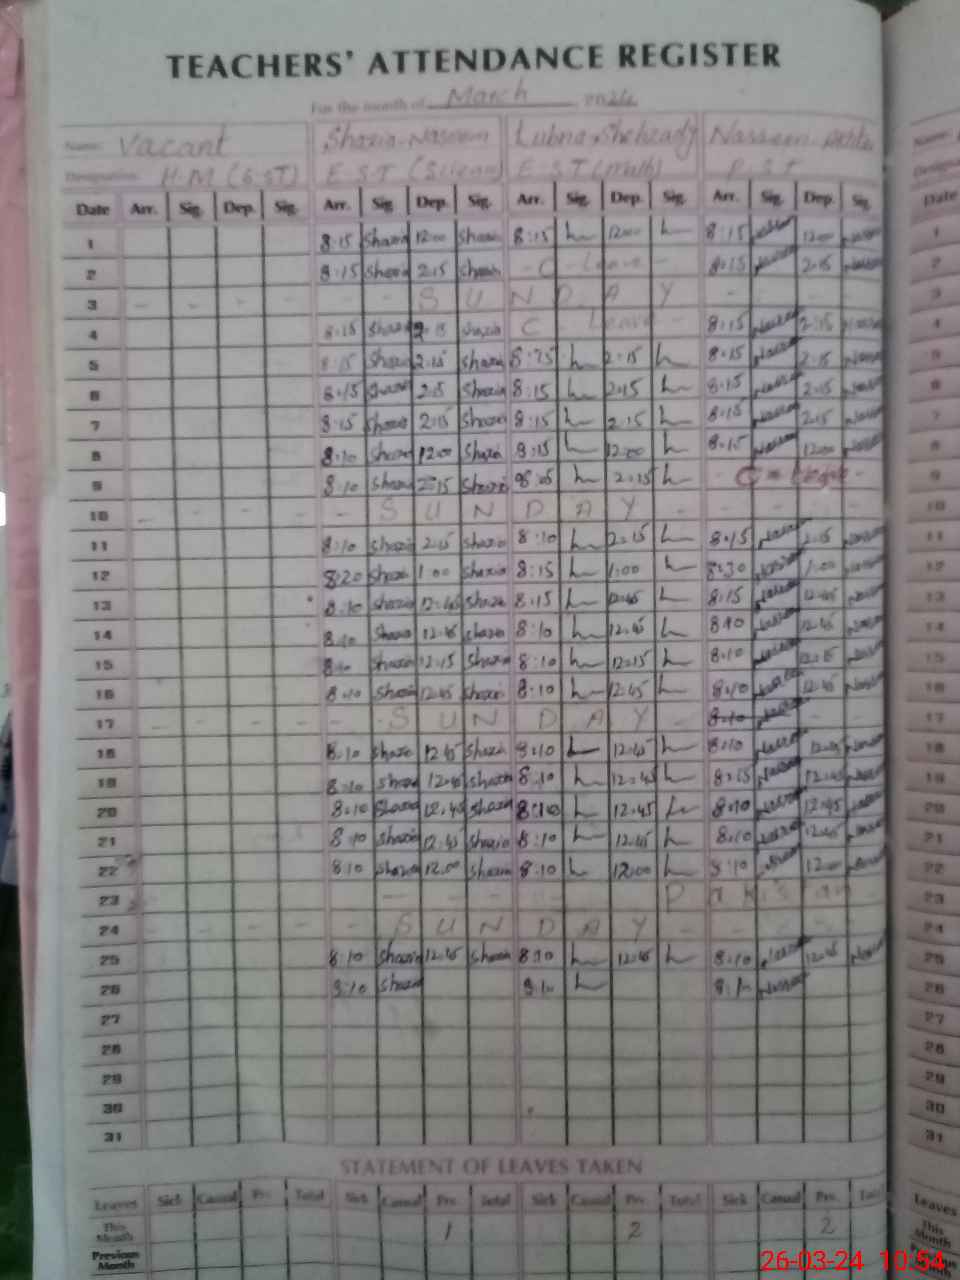 TEACHERS' ATTENDANCE REGISTER
For the month of March 2024
Name: Vacant Shazia Naseem Lubna Shehzady Nasseem Akhter
Designation: H.M (S.ST) E.S.T (Science) E.S.T (Math) P.S.T
Date Arr. Sig. Dep. Sig. Arr. Sig. Dep. Sig. Arr. Sig. Dep. Sig. Arr. Sig. Dep. Sig. Date
1 8:15 Shazia 12:00 Shazia 8:15 12:00 8:15 12:00 1
2 8:15 Shazia 2:15 Shazia - C - Leave - 8:15 2:15 2
3 - - - - - - S U N D A Y - - - 3
4 8:15 Shazia 2:15 Shazia C - Leave - 8:15 2:15 4
5 8:15 Shazia 2:15 Shazia 8:15 2:15 8:15 2:15 5
6 8:15 Shazia 2:15 Shazia 8:15 2:15 8:15 2:15 6
7 8:15 Shazia 2:15 Shazia 8:15 2:15 8:15 2:15 7
8 8:10 Shazia 12:00 Shazia 8:15 12:00 8:15 12:00 8
9 8:10 Shazia 2:15 Shazia 2:15 - C - Leave - 9
10 - - - - - S U N D A Y - - - - 10
11 8:10 Shazia 2:15 Shazia 8:10 2:15 8:15 2:15 11
12 8:20 Shazia 1:00 Shazia 8:15 1:00 8:30 1:00 12
13 8:10 Shazia 12:45 Shazia 8:15 12:45 8:15 12:45 13
14 8:10 Shazia 12:45 Shazia 8:10 12:45 8:10 12:45 14
15 8:10 Shazia 12:15 Shazia 8:10 12:15 8:10 12:15 15
16 8:10 Shazia 12:45 Shazia 8:10 12:45 8:10 12:45 16
17 - - - - - S U N D A Y - 8:10 17
18 8:10 Shazia 12:45 Shazia 8:10 12:45 8:10 12:45 18
19 8:10 Shazia 12:45 Shazia 8:10 12:45 8:15 12:45 19
20 8:10 Shazia 12:45 Shazia 8:10 12:45 8:10 12:45 20
21 8:10 Shazia 12:45 Shazia 8:10 12:45 8:10 12:45 21
22 8:10 Shazia 12:00 Shazia 8:10 12:00 8:10 12:00 22
23 - - - - Pakistan - 23
24 - - - - - S U N D A Y - - - - 24
25 8:10 Shazia 12:45 Shazia 8:10 12:45 8:10 12:45 25
26 8:10 Shazia 8:10 26
27 27
28 28
29 29
30 30
31 31
STATEMENT OF LEAVES TAKEN
Leaves Sick Casual Prv. Total Sick Casual Prv. Total Sick Casual Prv. Total Sick Casual Prv. Total Leaves
This Month 1 2 2 This Month
Previous Month Previous Month
26-03-24 10:54